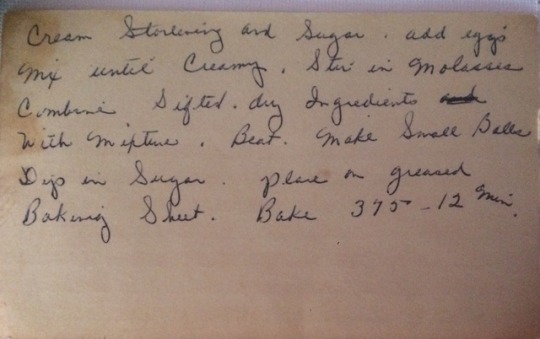 Cream Shortening and Sugar. add eggs
Mix until Creamy. Stir in Molasses
Combine Sifted dry Ingredients
With Mixture. Beat. Make Small Balls
Dip in Sugar. place on greased
Baking Sheet. Bake 375 - 12 min.